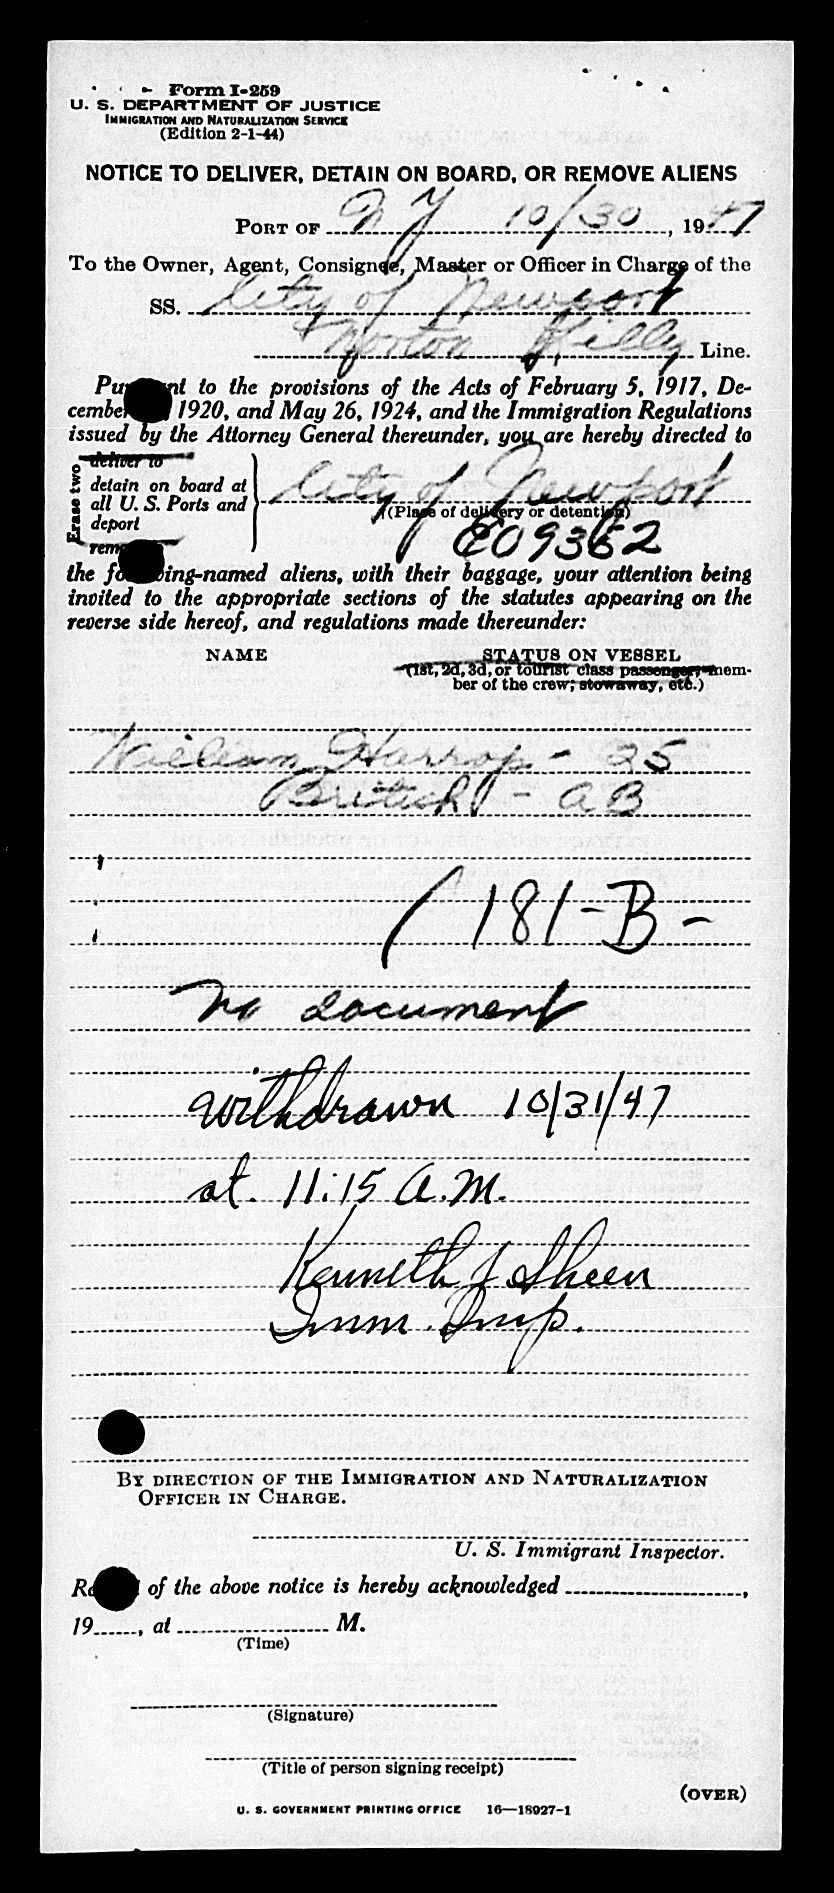 Form I-259
U. S. DEPARTMENT OF JUSTICE
IMMIGRATION AND NATURALIZATION SERVICE
(Edition 2-1-44)
NOTICE TO DELIVER, DETAIN ON BOARD, OR REMOVE ALIENS
PORT OF N Y 10/30, 1947
To the Owner, Agent, Consignee, Master or Officer in Charge of the
SS. City of Newport
Norton Lilly Line.
Pursuant to the provisions of the Acts of February 5, 1917, De-
cember 1920, and May 26, 1924, and the Immigration Regulations
issued by the Attorney General thereunder, you are hereby directed to
Erase two
deliver to
detain on board at
all U. S. Ports and
deport
City of Newport
(Place of delivery or detention)
E09352
the following-named aliens, with their baggage, your attention being
invited to the appropriate sections of the statutes appearing on the
reverse side hereof, and regulations made thereunder:
NAME STATUS ON VESSEL
(1st, 2d, 3d, or tourist class passenger, mem-
ber of the crew; stowaway, etc.)
William Harrop - 25
British - AB
( 181-B-
No document
Withdrawn 10/31/47
at. 11:15 A.M.
Kenneth J Sheen
Imm. Insp.
BY DIRECTION OF THE IMMIGRATION AND NATURALIZATION
OFFICER IN CHARGE.
U. S. Immigrant Inspector.
Receipt of the above notice is hereby acknowledged ,
19 , at M.
(Time)
(Signature)
(Title of person signing receipt)
(OVER)
U. S. GOVERNMENT PRINTING OFFICE 16—18927-1